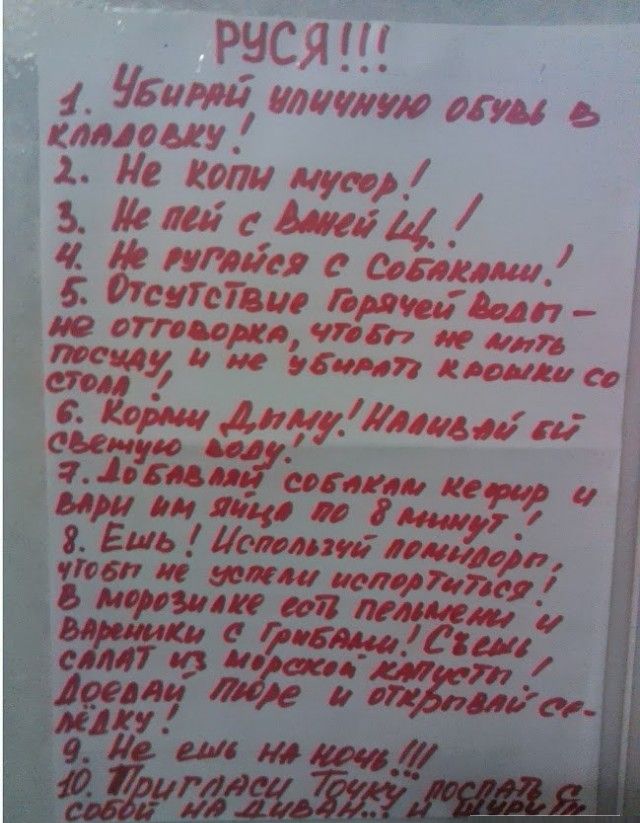 РУСЯ!!!
1. Убирай уличную обувь в
кладовку!
2. Не копи мусор!
3. Не пей с Ваней Щ.!
4. Не ругайся с Собаками!
5. Отсутствие Горячей Воды –
не отговорка, чтобы не мыть
посуду, и не убирать крошки со
стола!
6. Корми Дыму! Наливай ей
свежую воду!
7. Добавляй собакам кефир и
вари им яйца по 8 минут!
8. Ешь! Используй помидоры,
чтобы не успели испортиться!
В морозилке есть пельмени и
вареники с Грибами! Съешь
салат из морской капусты!
Доедай пюре и открывай се-
лёдку!
9. Не ешь на ночь!!!
10. Пригласи Точку поспать с
собой на диван... и